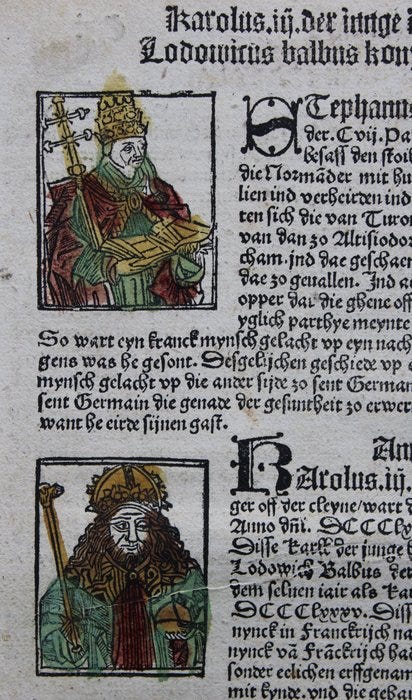 Karolus.iij.der iunge
Lodowicus balbus kon
STephanus
der.C vij.Pa
besaß den stoil
die Normāder mit hu
lien ind verheirden ind
ten sich die van Turon
van dan zo Altisiodo
cham.jnd dae geschach
dae zo geuallen. Jnd a
opper dat die ghene off
yglich parthye meynte
So wart eyn kranck mynsch gelacht vp eyn nach
gens was he gesont. Desgelijchen geschiede vp
mynsch gelacht vp die ander sijde zo sent German
sent Germain die genade der gesuntheit zo erwer
want he eirde sijnen gast.
An
KArolus.iij.
ger off der cleyne/wart
Anno dñi. DCCCLx
Disse Karll der junge
Lodowich Balbus der
dem seluen iair als Ka
DCCCLxxxv. Diss
nynck in Franckrijch na
nynck vā Frāckrijch ha
sonder eelichen erffgenam
mit kynde.vnd die gehu